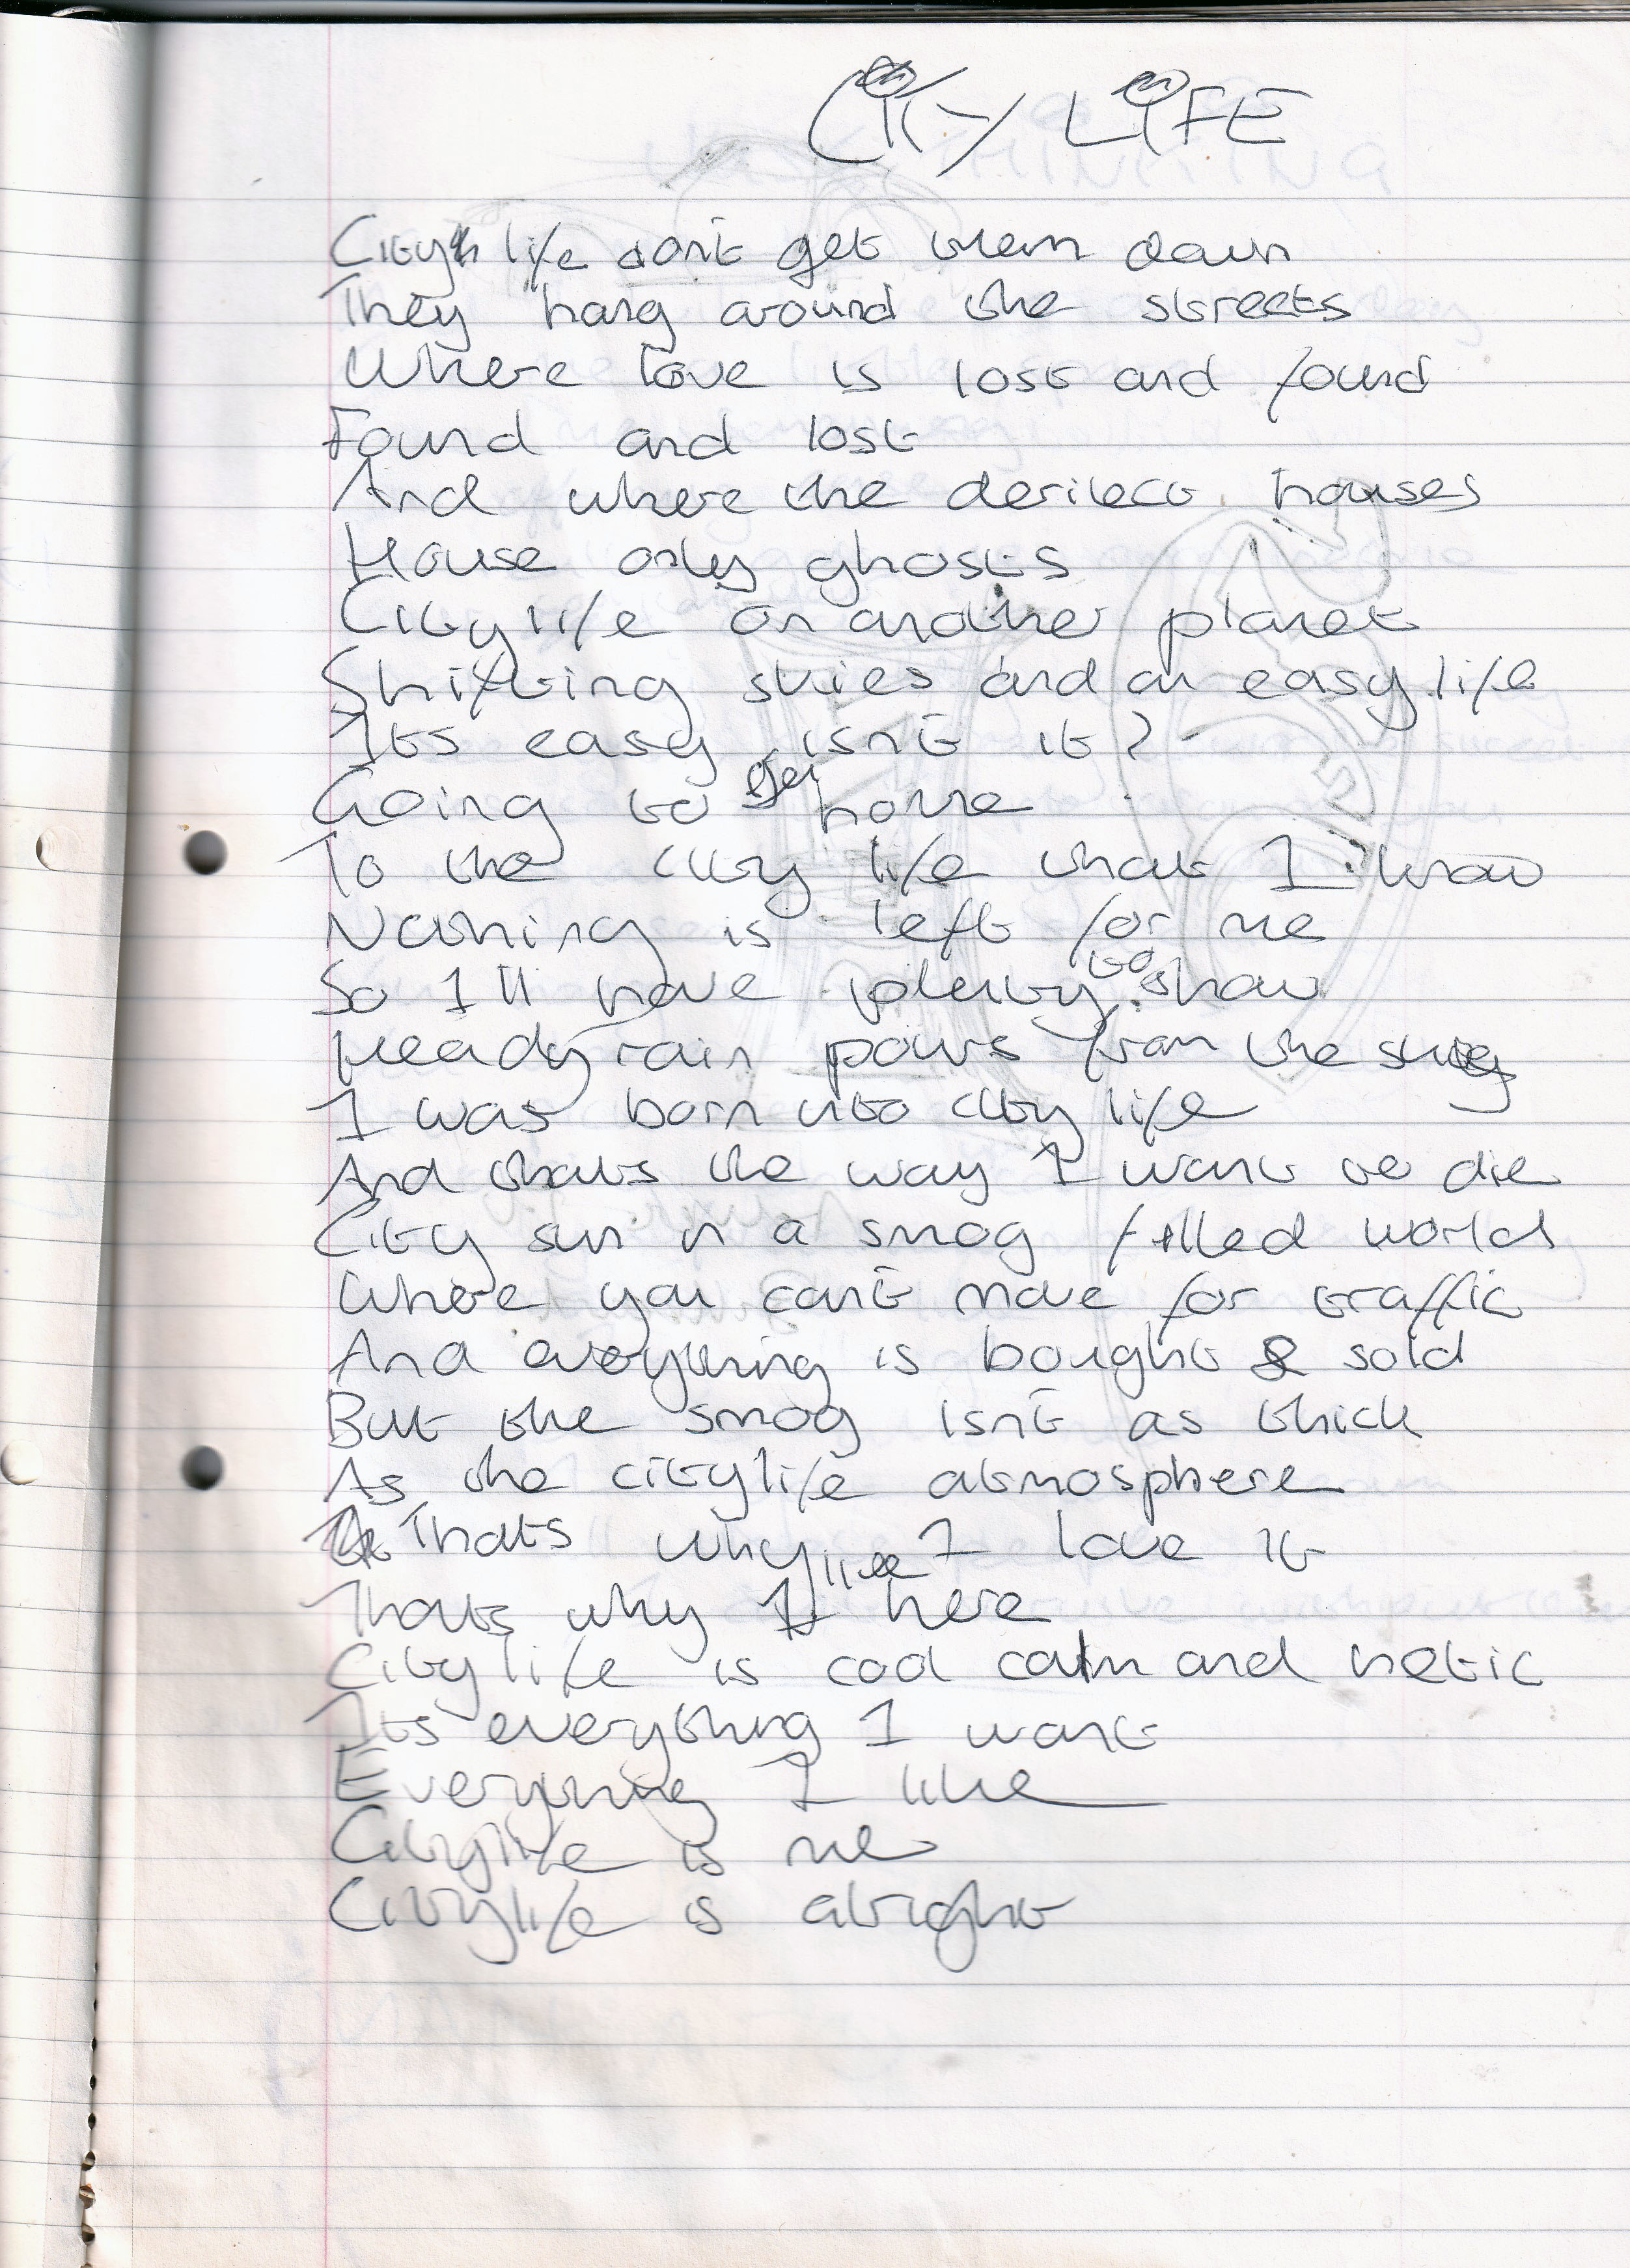 CITY LIFE
City life don't get them down
They hang around the streets
Where love is lost and found
Found and lost
And where the derilect houses
House only ghosts
City life on another planet
Shifting skies and an easy life
Its easy isn't it?
Going to get home
To the city life that I know
Nothing is left for me
So I'll have plenty to show
Heady rain pours from the sky
I was born into city life
And thats the way I want to die
City sun in a smog filled world
Where you can't move for traffic
And everything is bought & sold
But the smog isn't as thick
As the citylife atmosphere
Thats why I love it
Thats why I live here
Citylife is cool calm and hetic
Its everything I want
Everything I like
Citylife is me
Citylife is alright